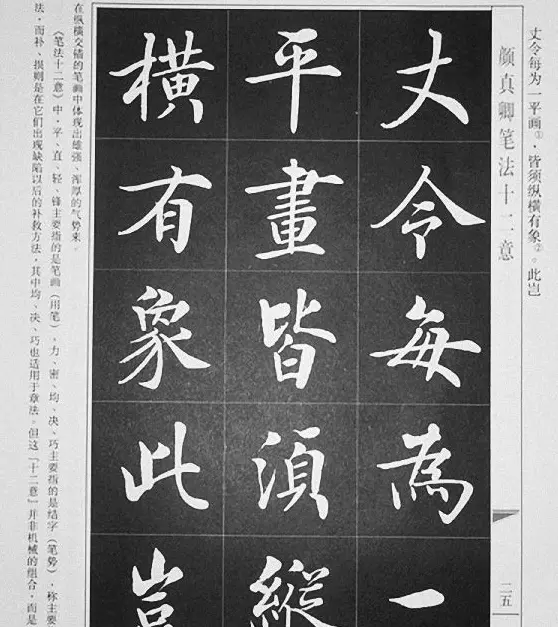 丈令每为一平画①，皆须纵横有象②。此岂
颜真卿笔法十二意
二五
丈令每為一
平畫皆須縱
橫有象此豈
在纵横交错的笔画中体现出雄强、浑厚的气势来。
《笔法十二意》中，平、直、轻、锋主要指的是笔画（用笔），力、密、均、决、巧主要指的是结字（笔势），称主要
法，而补、损则是在它们出现缺陷以后的补救方法，其中均、决、巧也适用于章法。但这「十二意」并非机械的组合，而是